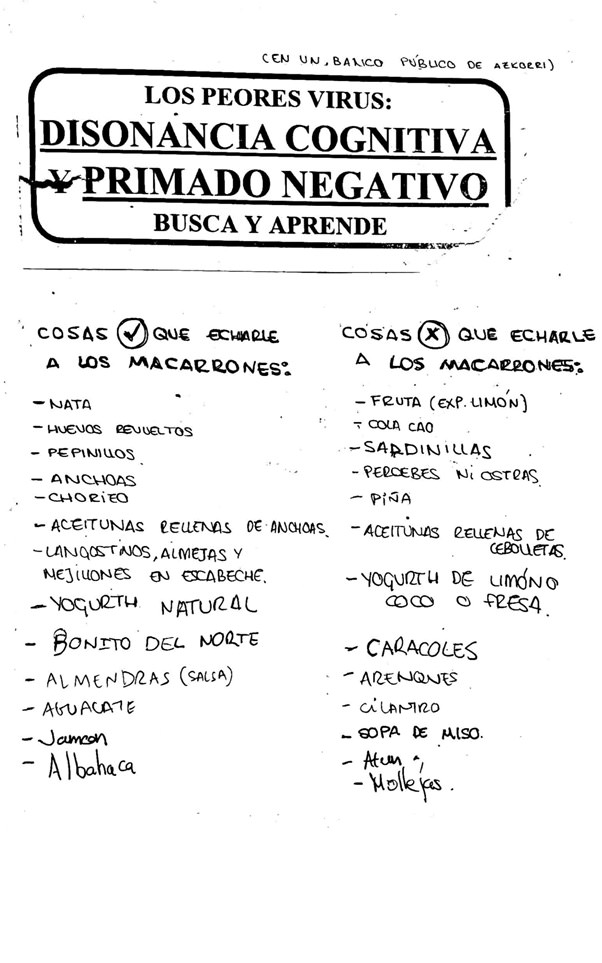 (EN UN BANCO PÚBLICO DE AZKORRI)
LOS PEORES VIRUS:
DISONANCIA COGNITIVA
Y PRIMADO NEGATIVO
BUSCA Y APRENDE
COSAS ✓ QUE ECHARLE
A LOS MACARRONES:
- NATA
- HUEVOS REVUELTOS
- PEPINILLOS
- ANCHOAS
- CHORIZO
- ACEITUNAS RELLENAS DE ANCHOAS.
- LANGOSTINOS, ALMEJAS Y
MEJILLONES EN ESCABECHE.
- YOGURTH NATURAL
- BONITO DEL NORTE
- ALMENDRAS (SALSA)
- AGUACATE
- Jamon
- Albahaca
COSAS X QUE ECHARLE
A LOS MACARRONES:
- FRUTA (EXP. LIMÓN)
- COLA CAO
- SARDINILLAS
- PERCEBES NI OSTRAS
- PIÑA
- ACEITUNAS RELLENAS DE
CEBOLLETAS.
- YOGURTH DE LIMÓNO
COCO O FRESA.
- CARACOLES
- ARENQUES
- CILANTRO
- SOPA DE MISO.
- Atun
- Mollejas.